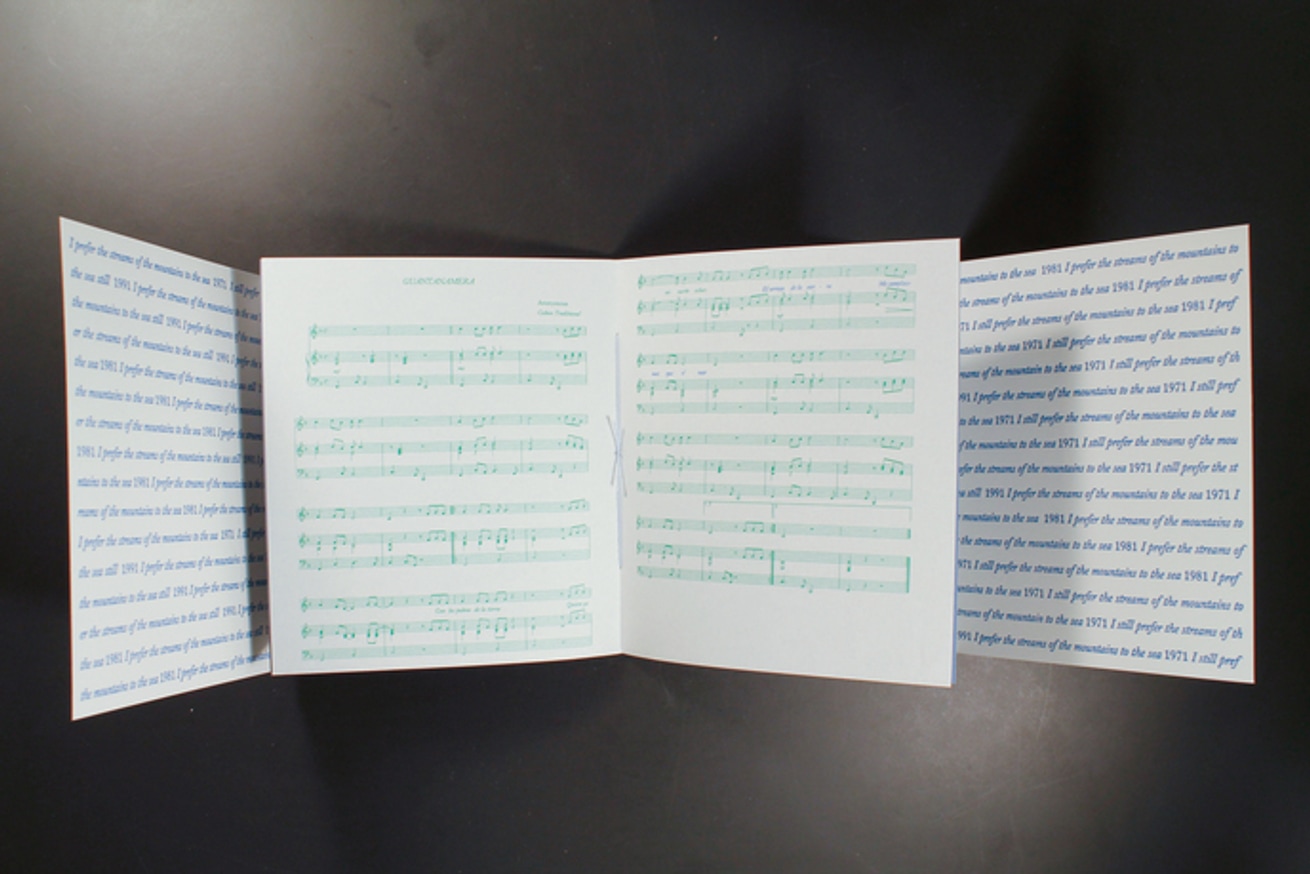 I prefer the streams of the mountains to the sea 1971 I still prefer
the sea still 1991 I prefer the streams of the mountains to the sea
the mountains to the sea still 1991 I prefer the streams of the
or the streams of the mountains to the sea still 1991 I prefer
the sea 1981 I prefer the streams of the mountains to the sea still
the mountains to the sea 1981 I prefer the streams of the mountains
or the streams of the mountains to the sea 1981 I prefer the
1981 I prefer the streams of the mountains to the sea still 1991 I
ntains to the sea 1981 I prefer the streams of the mountains
I prefer the streams of the mountains to the sea 1981 I prefer the
I prefer the streams of the mountains to the sea 1971 I still
the sea still 1991 I prefer the streams of the mountains to the sea
the mountains to the sea still 1991 I prefer the streams of the
or the streams of the mountains to the sea still 1991 I prefer
the sea 1981 I prefer the streams of the mountains to the sea
the mountains to the sea 1981 I prefer the streams of the mountains
GUANTANAMERA
Anonymous
Cuban Traditional
Con los pobres de la tierra
Quiero yo
mi suerte echar
El arroyo de la sierra
Me complace
mas que el mar
mountains to the sea 1981 I prefer the streams of the mountains to
the streams of the mountains to the sea 1981 I prefer the streams of
71 I still prefer the streams of the mountains to the sea 1981 I pref
ntains to the sea 1971 I still prefer the streams of the mountains to
streams of the mountains to the sea 1971 I still prefer the streams of th
991 I prefer the streams of the mountains to the sea 1971 I still pref
to the sea 1971 I still prefer the streams of the mountains to the sea
of the mountains to the sea 1971 I still prefer the streams of the mou
efer the streams of the mountains to the sea 1971 I still prefer the st
sea still 1991 I prefer the streams of the mountains to the sea 1971 I
mountains to the sea 1981 I prefer the streams of the mountains to
the streams of the mountains to the sea 1981 I prefer the streams of
971 I still prefer the streams of the mountains to the sea 1981 I pref
ntains to the sea 1971 I still prefer the streams of the mountains to
streams of the mountains to the sea 1971 I still prefer the streams of th
991 I prefer the streams of the mountains to the sea 1971 I still pref